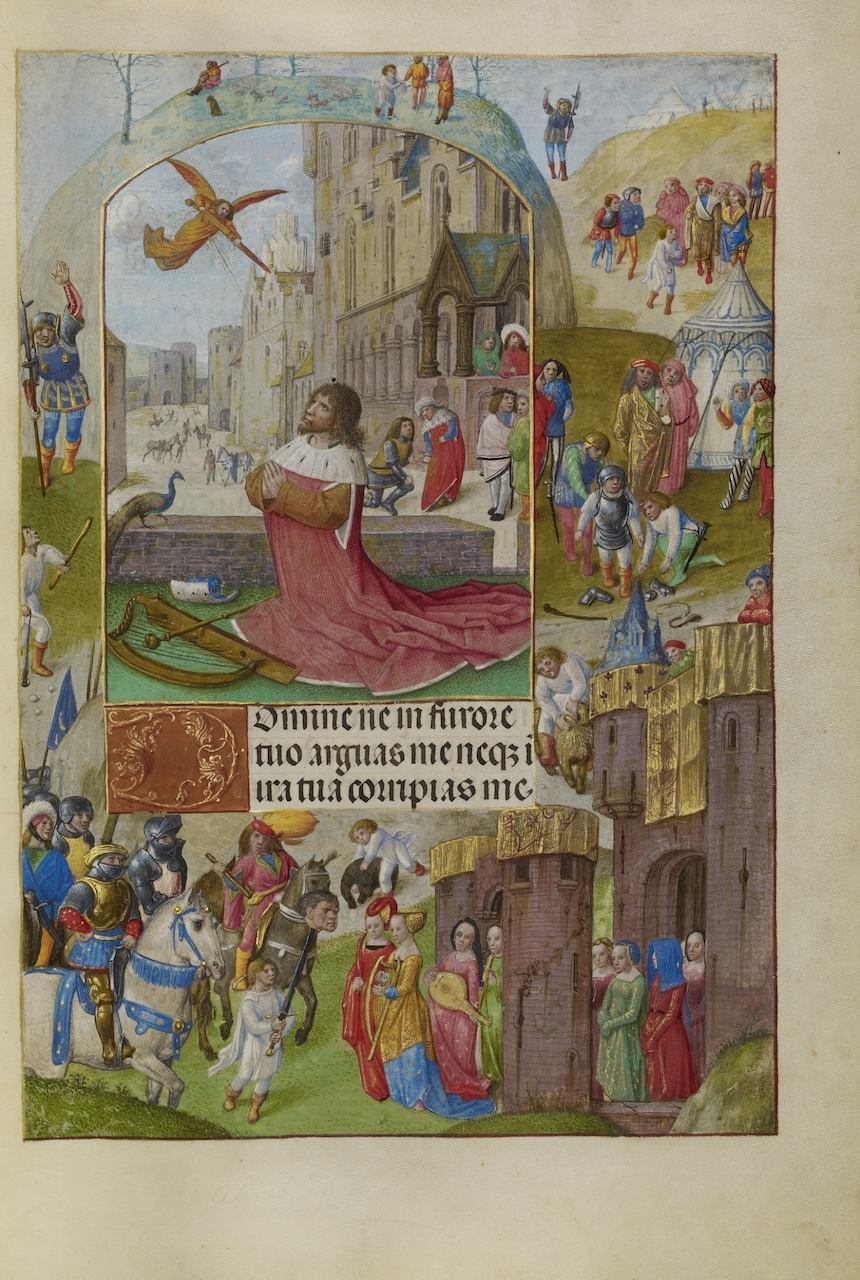 Domine ne in furore
tuo arguas me neqꝫ i
ira tua corripias me